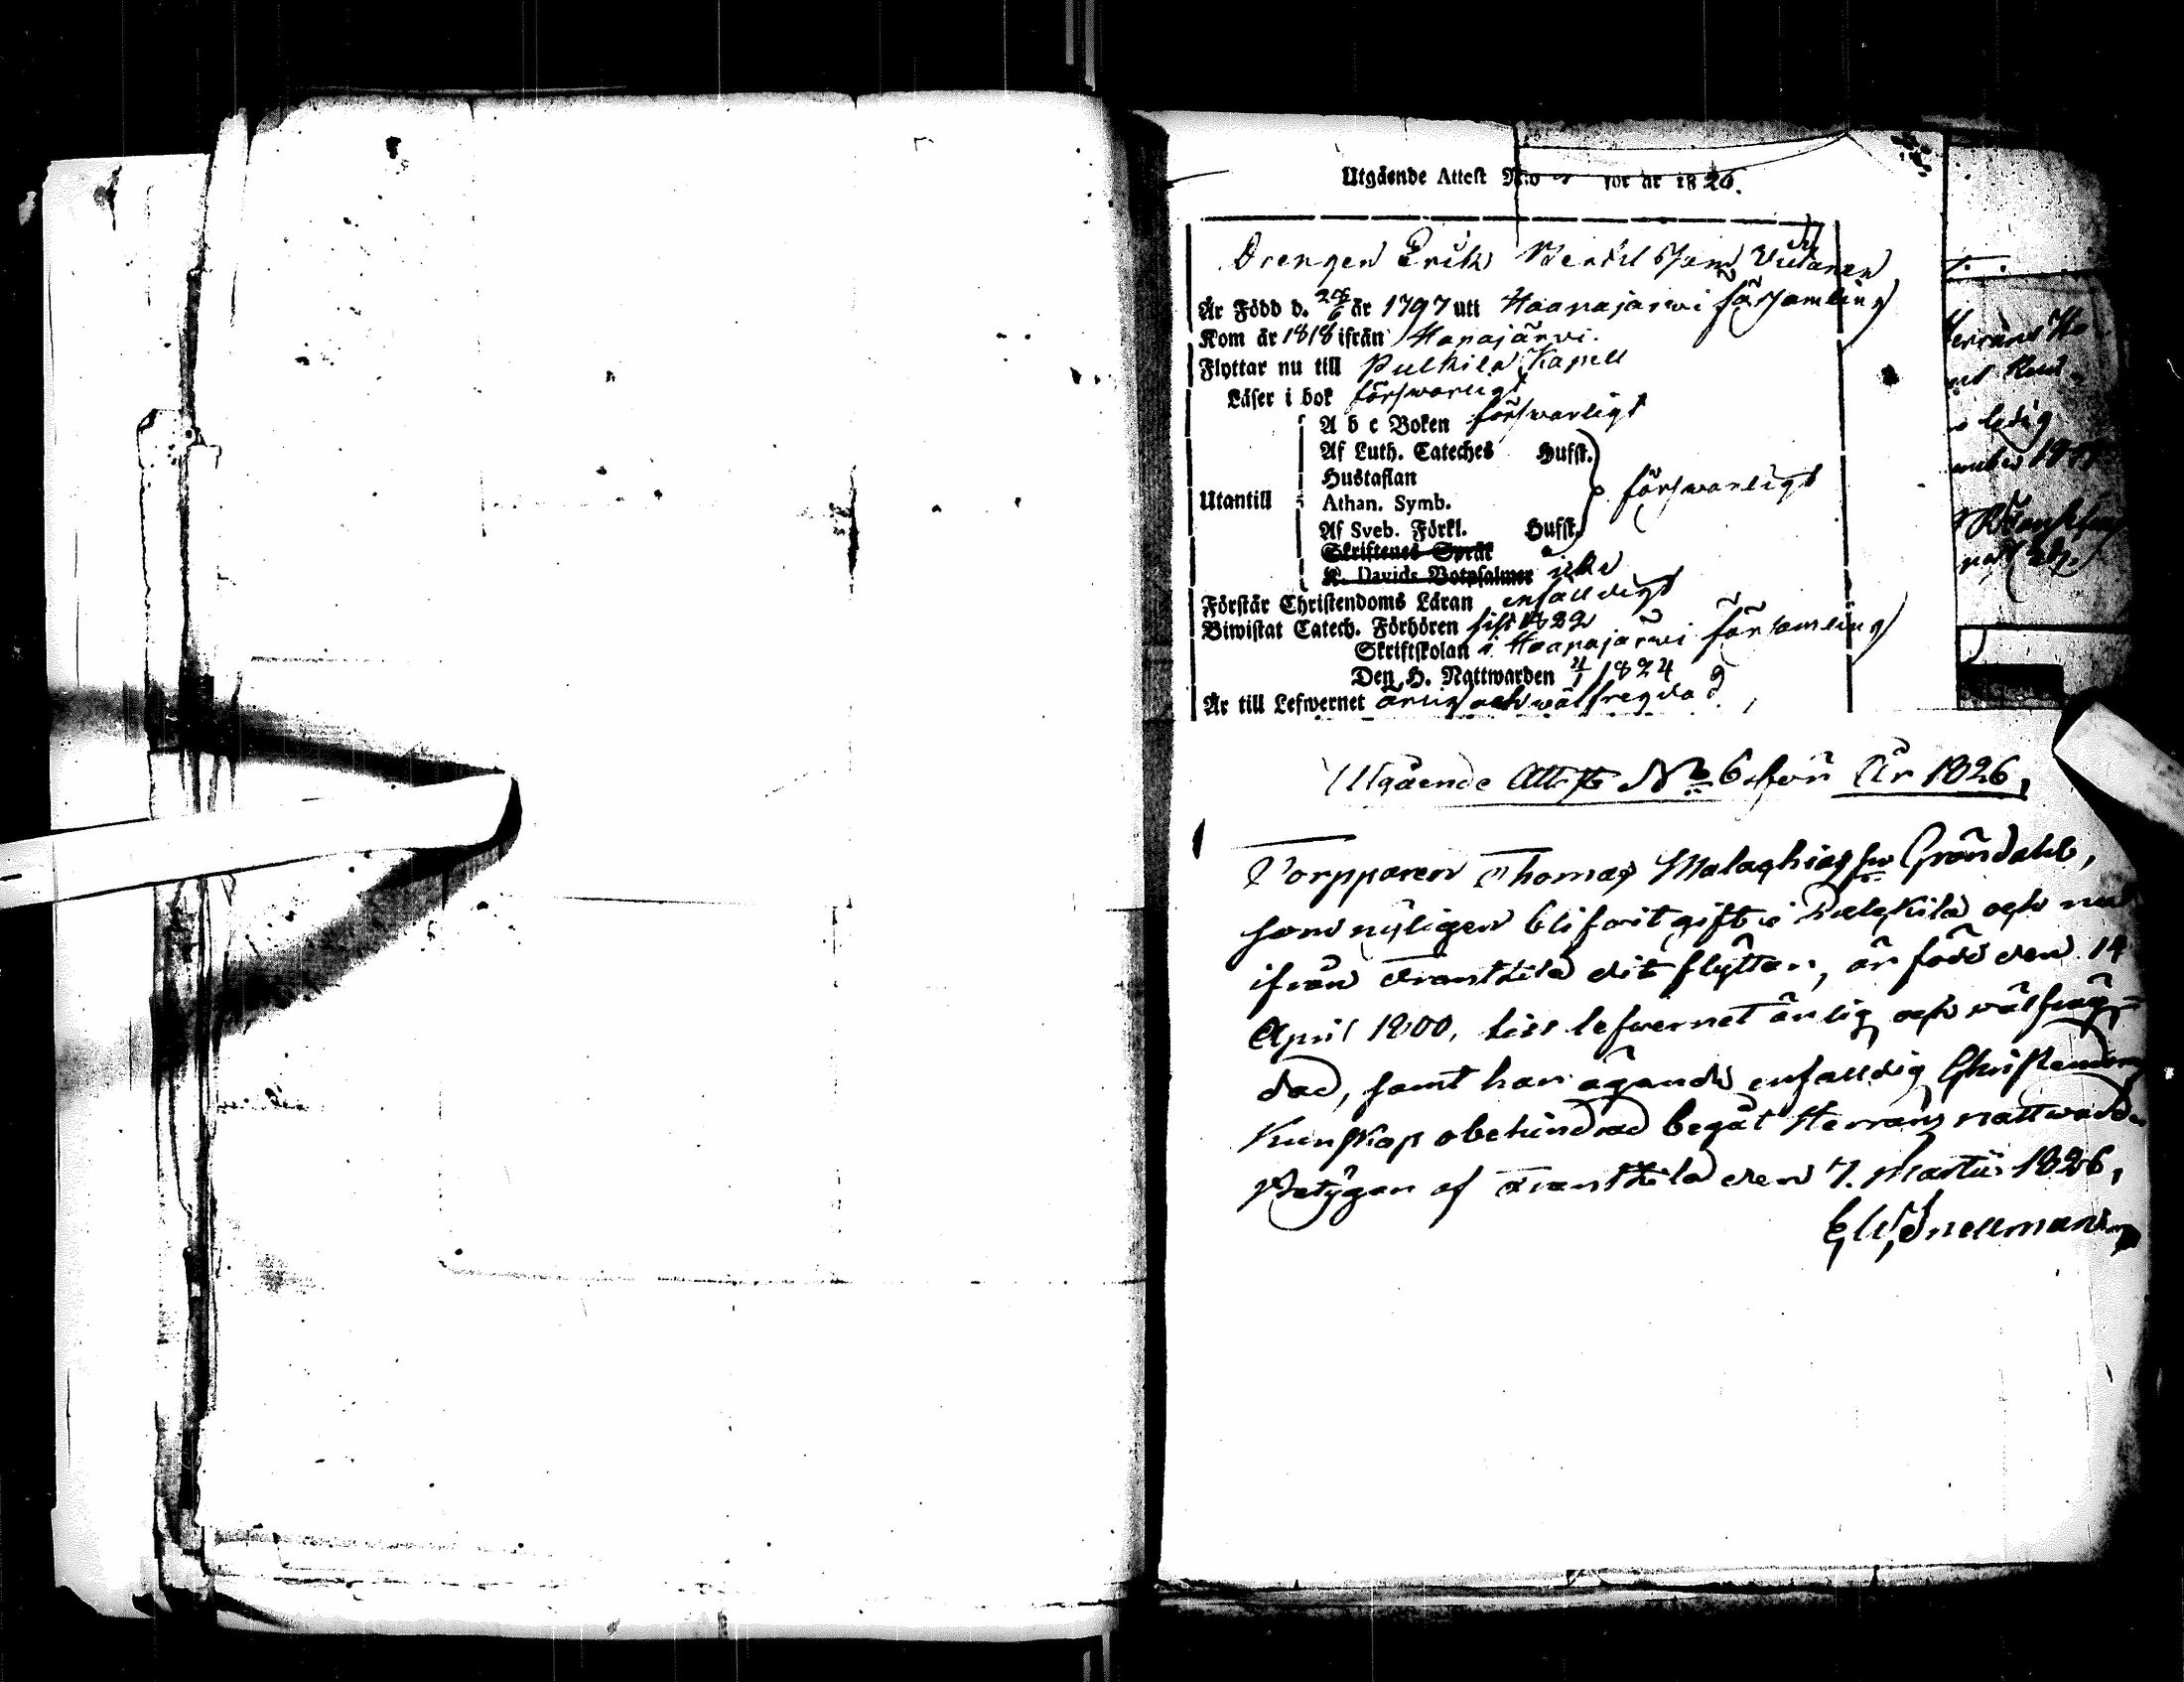 Utgående Attest N:o för år 1826.
Drengen Erik Bertilsson
År Född d. 28/6 år 1797 uti Haapajärwi församling
Kom år 1818 ifrån Hapajärvi.
Flyttar nu till Pulkila Kapell
Läser i bok förswarligt
A b c Boken förswarligt
Af Luth. Cateches Hufst.
Hustaflan
Utantill Athan. Symb. förswarligt
Af Sveb. Förkl. Hufst.
Skriftenes Språk
K. Davids Botpsalmer
Förstår Christendoms Läran enfalldigt
Biwistat Catech. Förhören sist 1822
Skriftskolan i Haapajärwi församling
Den H. Nattwarden 4/1 1824
År till Lefwernet ärlig och välfregdad
Utgående Attest No 6 för År 1826,
Torpparen Thomas Malachiasson Gröndahl,
som nyligen blifwit gift i Pulkila och nu
ifrån Frantsila dit flyttar, är född den 14
April 1800, till lefwernet ärlig och wälfräg-
dad, samt har ägande enfalldig Christendoms
Kunskap obehindrad begåt Herrans nattward
Betygar af Frantsila den 7. Martii 1826,
Snellman
ledig